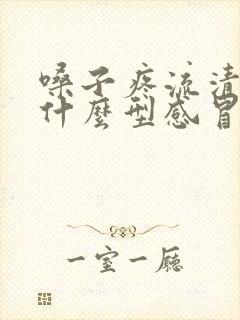 嗓子疼流清
什麼型感冒
一室一厅